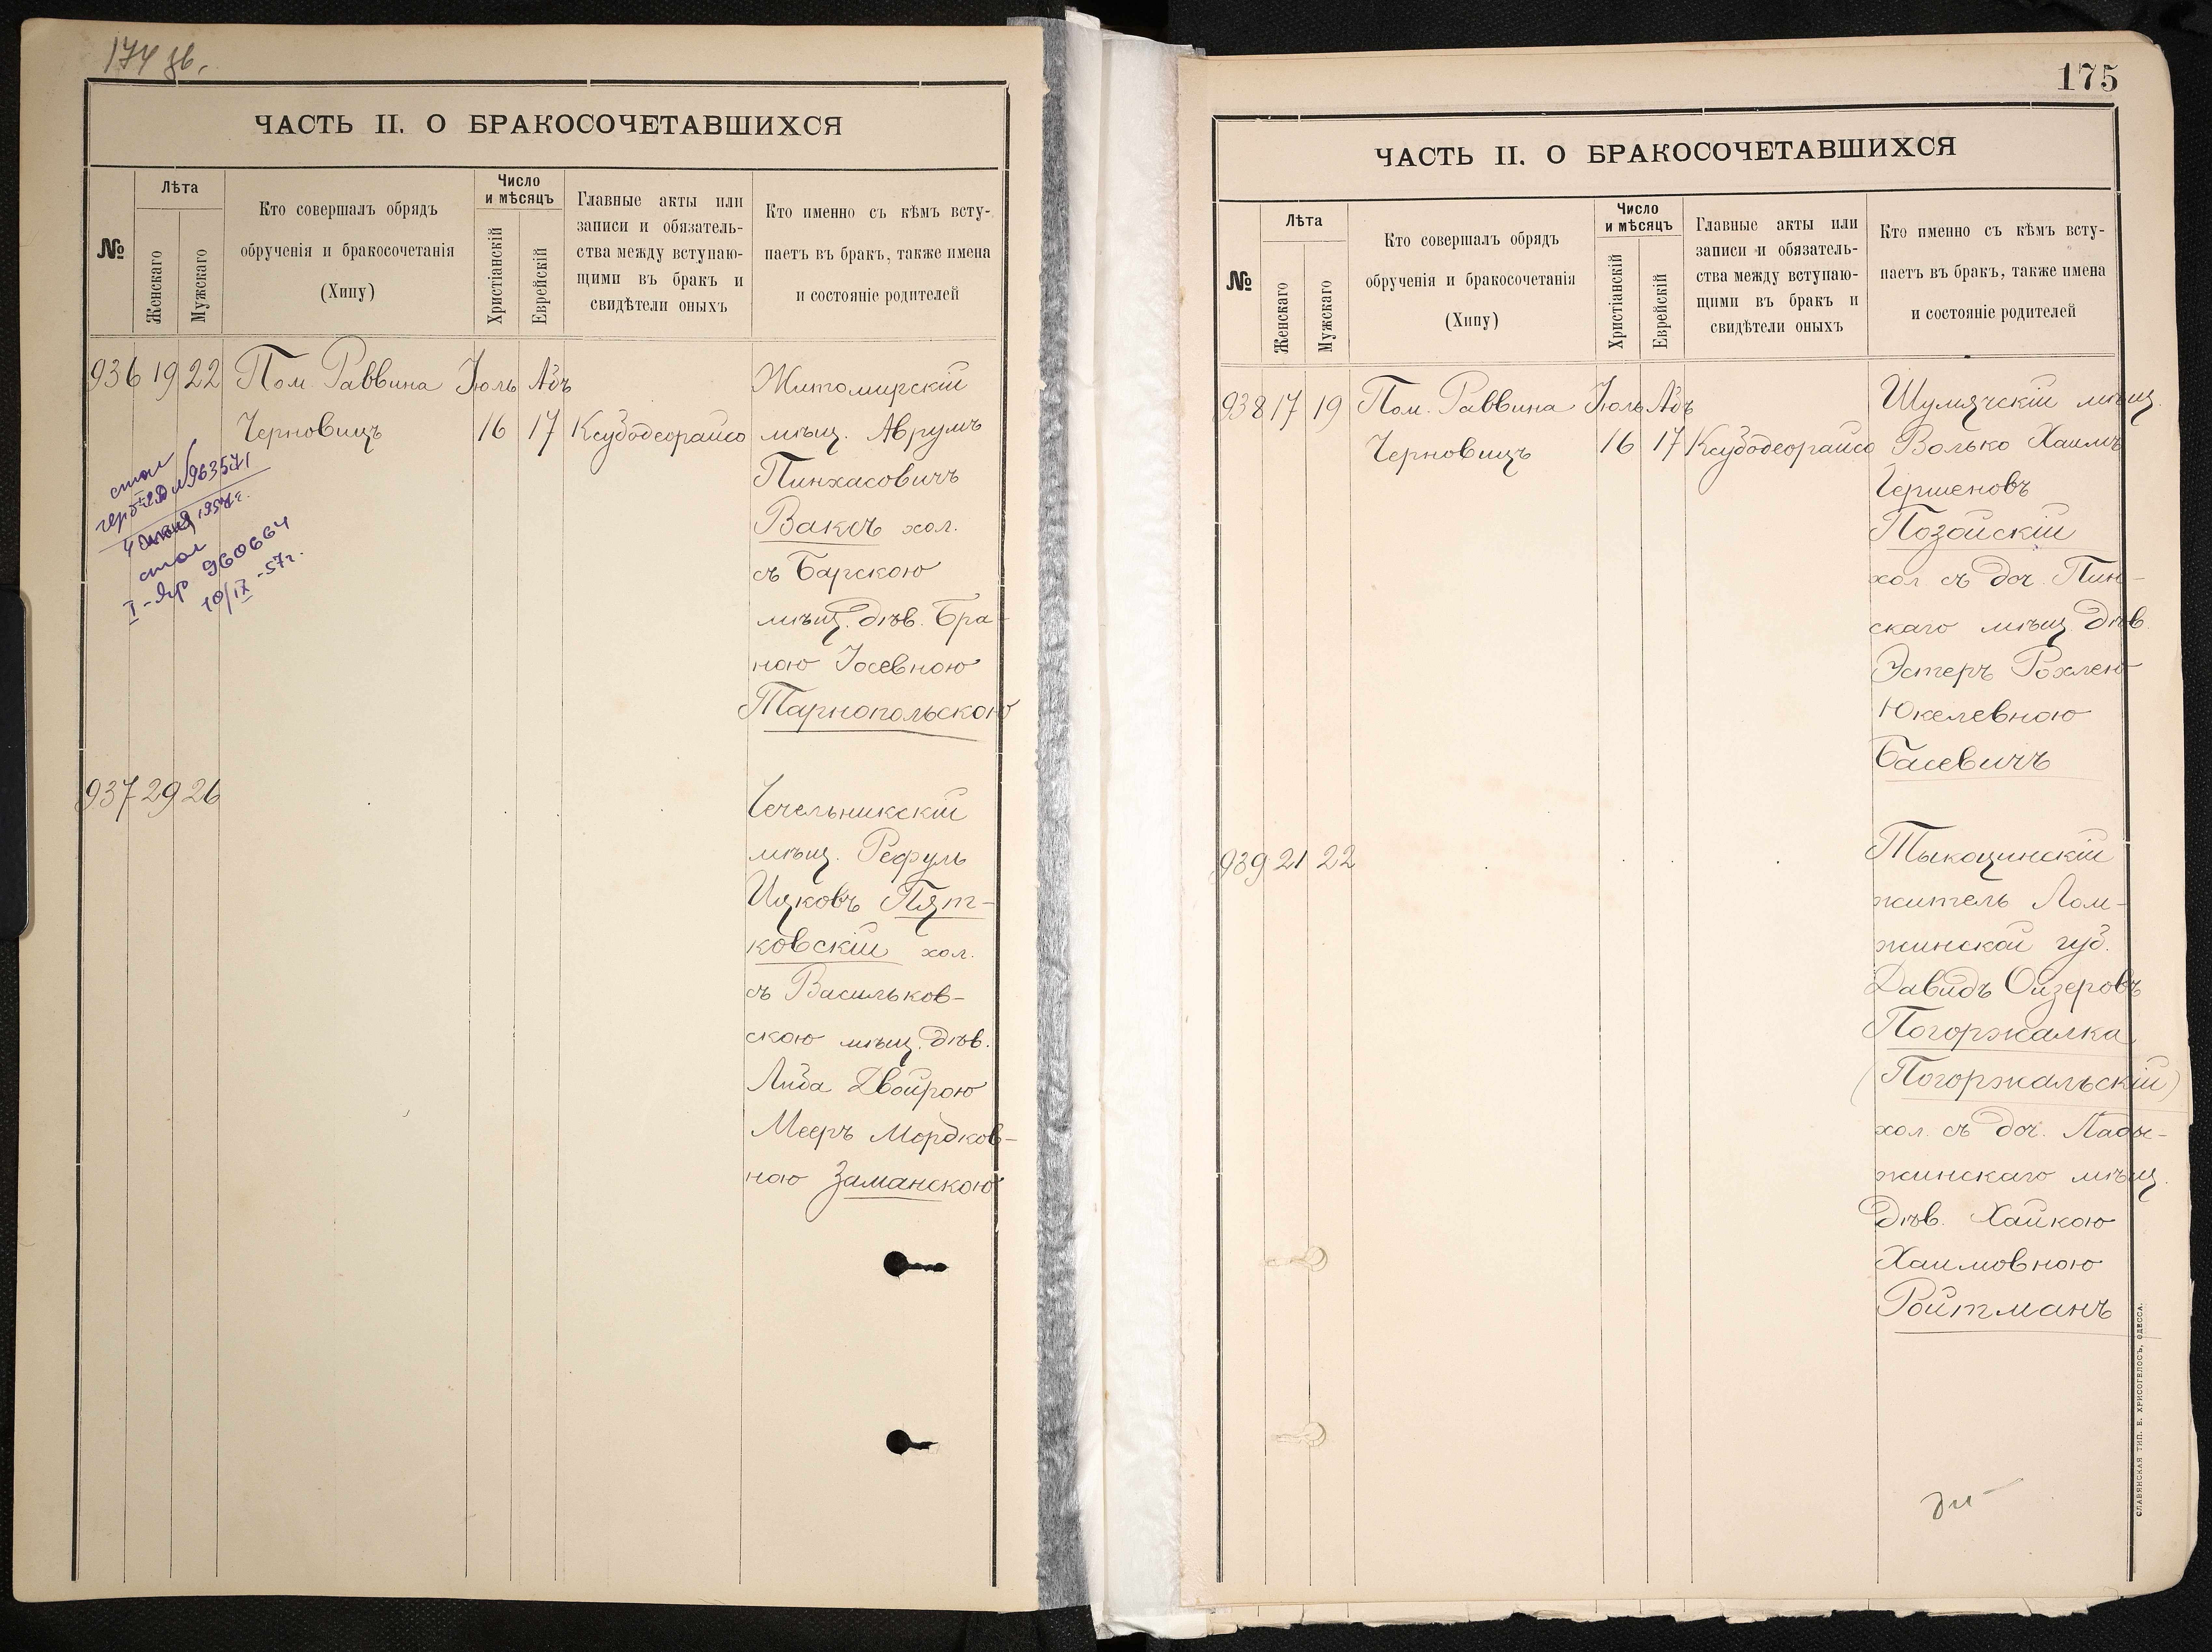 174 зв.
ЧАСТЬ II. О БРАКОСОЧЕТАВШИХСЯ
№
Лѣта
Женскаго
Мужскаго
Кто совершалъ обрядъ
обрученія и бракосочетанія
(Хипу)
Число
и мѣсяцъ
Христіанскій
Еврейскій
Главные акты или
записи и обязатель-
ства между вступаю-
щими въ бракъ и
свидѣтели оныхъ
Кто именно съ кѣмъ всту-
паетъ въ бракъ, также имена
и состояніе родителей
936 19 22 Пом. Раввина Іюль Абъ Житомирскій
Черновицъ 16 17 Ксубодеорайсо мѣщ. Аврумъ
Пинхасовичъ
Ваксъ хол.
съ Барскою
мѣщ. дѣв. Бра-
ною Іосевною
Тарнопольскою
963571
960664
10/IX-57г.
937 29 26 Чечельникскій
мѣщ. Рефуль
Ицковъ Пят-
ковскій хол.
съ Васильков-
скою мѣщ. дѣв.
Либа Двойрою
Мееръ Мордков-
ною Заманскою
175
ЧАСТЬ II. О БРАКОСОЧЕТАВШИХСЯ
№
Лѣта
Женскаго
Мужскаго
Кто совершалъ обрядъ
обрученія и бракосочетанія
(Хипу)
Число
и мѣсяцъ
Христіанскій
Еврейскій
Главные акты или
записи и обязатель-
ства между вступаю-
щими въ бракъ и
свидѣтели оныхъ
Кто именно съ кѣмъ всту-
паетъ въ бракъ, также имена
и состояніе родителей
938 17 19 Пом. Раввина Іюль Абъ Шумячскій мѣщ.
Черновицъ 16 17 Ксубодеорайсо Волько Хаимъ
Гершеновъ
Позойскій
хол съ доч. Пин-
скаго мѣщ. дѣв.
Эстеръ Рохлею
Юкелевною
Басевичъ
939 21 22 Тыкоцинскій
житель Лом-
жинской губ.
Давидъ Ойзеровъ
Погоржалка
(Погоржальскій)
хол. съ доч. Лады-
жинскаго мѣщ.
дѣв. Хайкою
Хаимовною
Ройтманъ
СЛАВЯНСКАЯ ТИП. Е. ХРИСОГЕЛОСЪ, ОДЕССА.